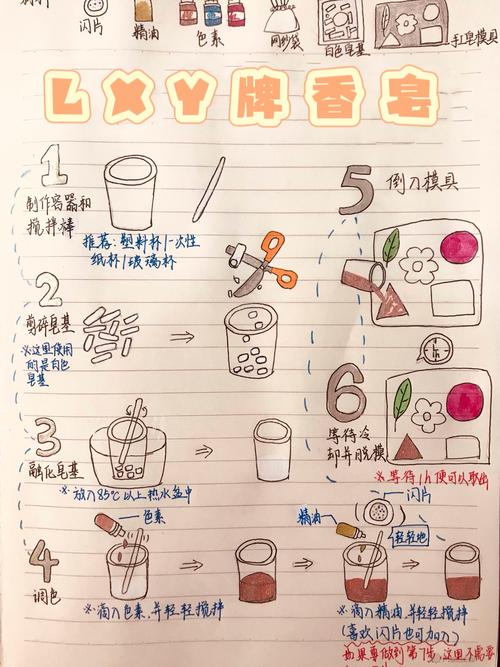 闪片
精油
色素
网纱袋
白色皂基
手工皂模具
LXY牌香皂
1
制作容器和
搅拌棒
推荐:塑料杯/一次性
纸杯/玻璃杯
2
剪碎皂基
※这里使用
的是白色
皂基
3
融化皂基
※放入85℃以上热水盆中
4
调色
色素
※滴入色素,并轻轻搅拌
5
倒入模具
6
等待冷
却并脱模
※等待1h便可以取出
闪片
精油
轻轻地
※滴入精油,并轻轻搅拌
(喜欢闪片也可加入)
如果要做到第7步,这里不需要